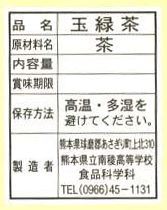 品名 玉緑茶
原材料名 茶
内容量
賞味期限
保存方法 高温・多湿を
避けてください。
製造者 熊本県球磨郡あさぎり町上北310
熊本県立南稜高等学校
食品科学科
TEL(0966)45-1131